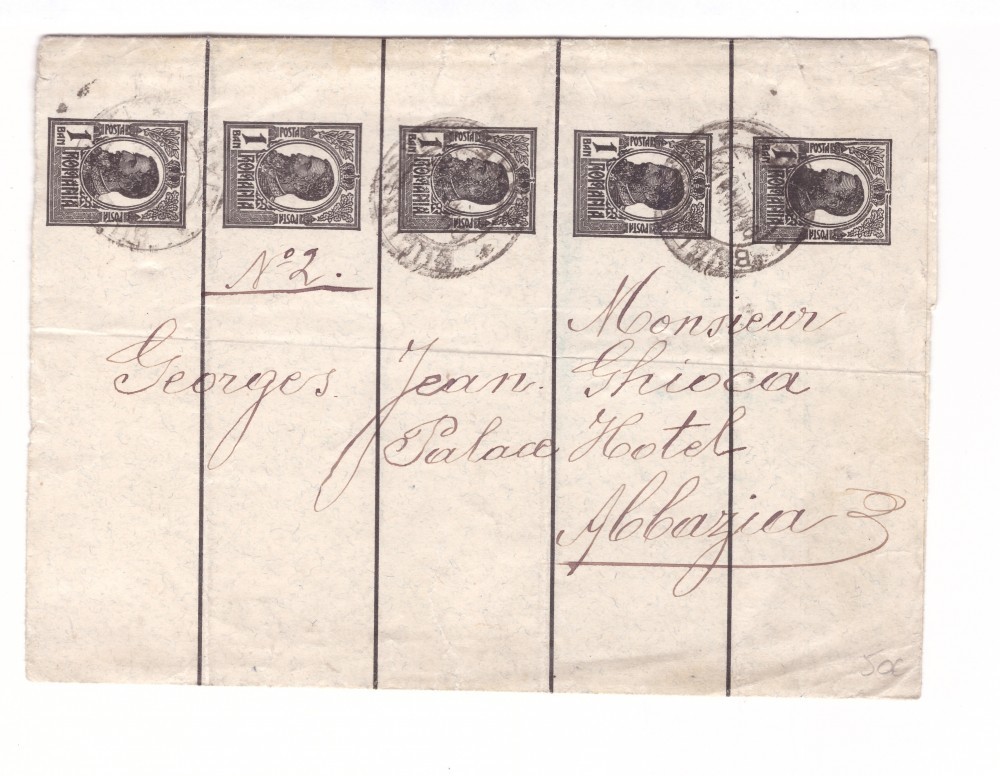 1 BAN POSTA ROMANIA POSTA
1 BAN POSTA ROMANIA POSTA
1 BAN POSTA ROMANIA POSTA
1 BAN POSTA ROMANIA POSTA
1 BAN POSTA ROMANIA POSTA
Nº 2.
Monsieur
Georges Jean Ghioca
Palace Hotel
Abbazia